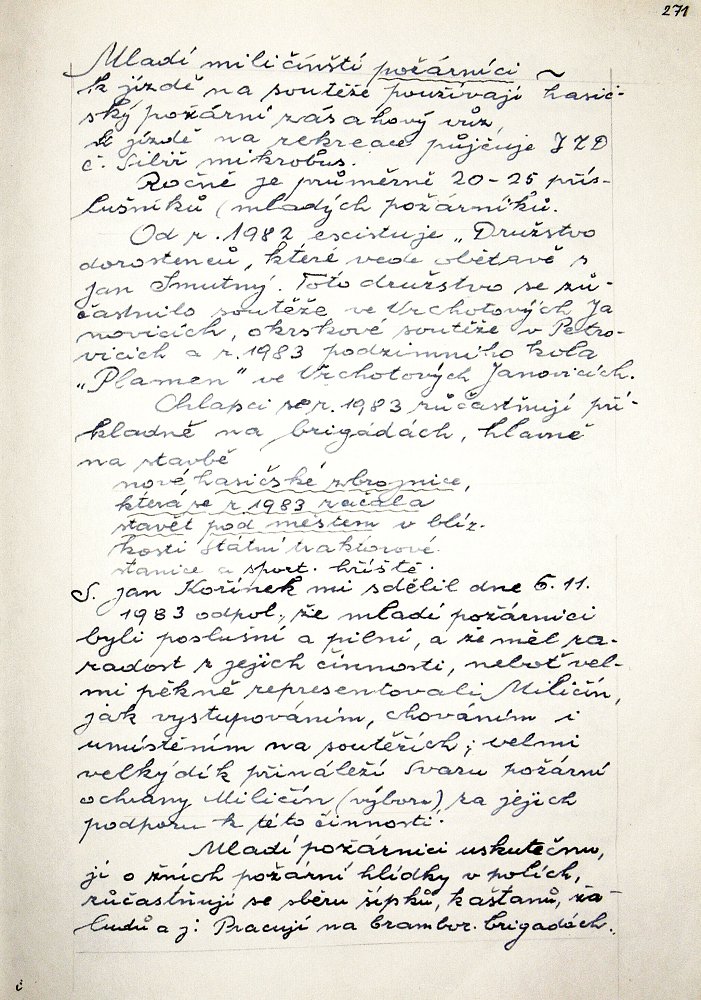 271
Mladí miličínští požárníci ~
k jízdě na soutěže používají hasič-
ský požární zásahový vůz,
k jízdě na rekreace půjčuje JZD
č. Silíř mikrobus.
Ročně je průměrně 20-25 přís-
lušníků (mladých požárníků.
Od r. 1982 escistuje „Družstvo
dorostenců, které vede obětavě s
Jan Smutný. Toto družstvo se zú-
častnilo soutěže ve Vrchotových Ja
novicích, okrskové soutěže v Petro-
vicích a r. 1983 podzimního kola
„Plamen" ve Vrchotových Janovicích.
Chlapci se r. 1983 zúčastňují pří-
kladně na brigádách, hlavně
na stavbě
nové hasičské zbrojnice,
která se r 1983 začala
stavět pod městem v blíz-
kosti Státní traktorové
stanice a sport. hřiště.
S. Jan Kořínek mi sdělil dne 6. 11.
1983 odpol., že mladí požárníci
byli poslušní a pilní, a že měl ra-
radost z jejich činnosti, neboť vel-
mi pěkně representovali Miličín,
jak vystupováním, chováním i
umístěním na soutěžích; velmi
velký dík přináleží Svazu požární
ochrany Miličín (výboru) za jejich
podporu k této činnosti.
Mladí požárníci uskutečňu,
jí o žních požární hlídky v polích,
zúčastňují se sběru šípků, kaštanů, ža-
ludů a j. Pracují na brambor. brigádách.